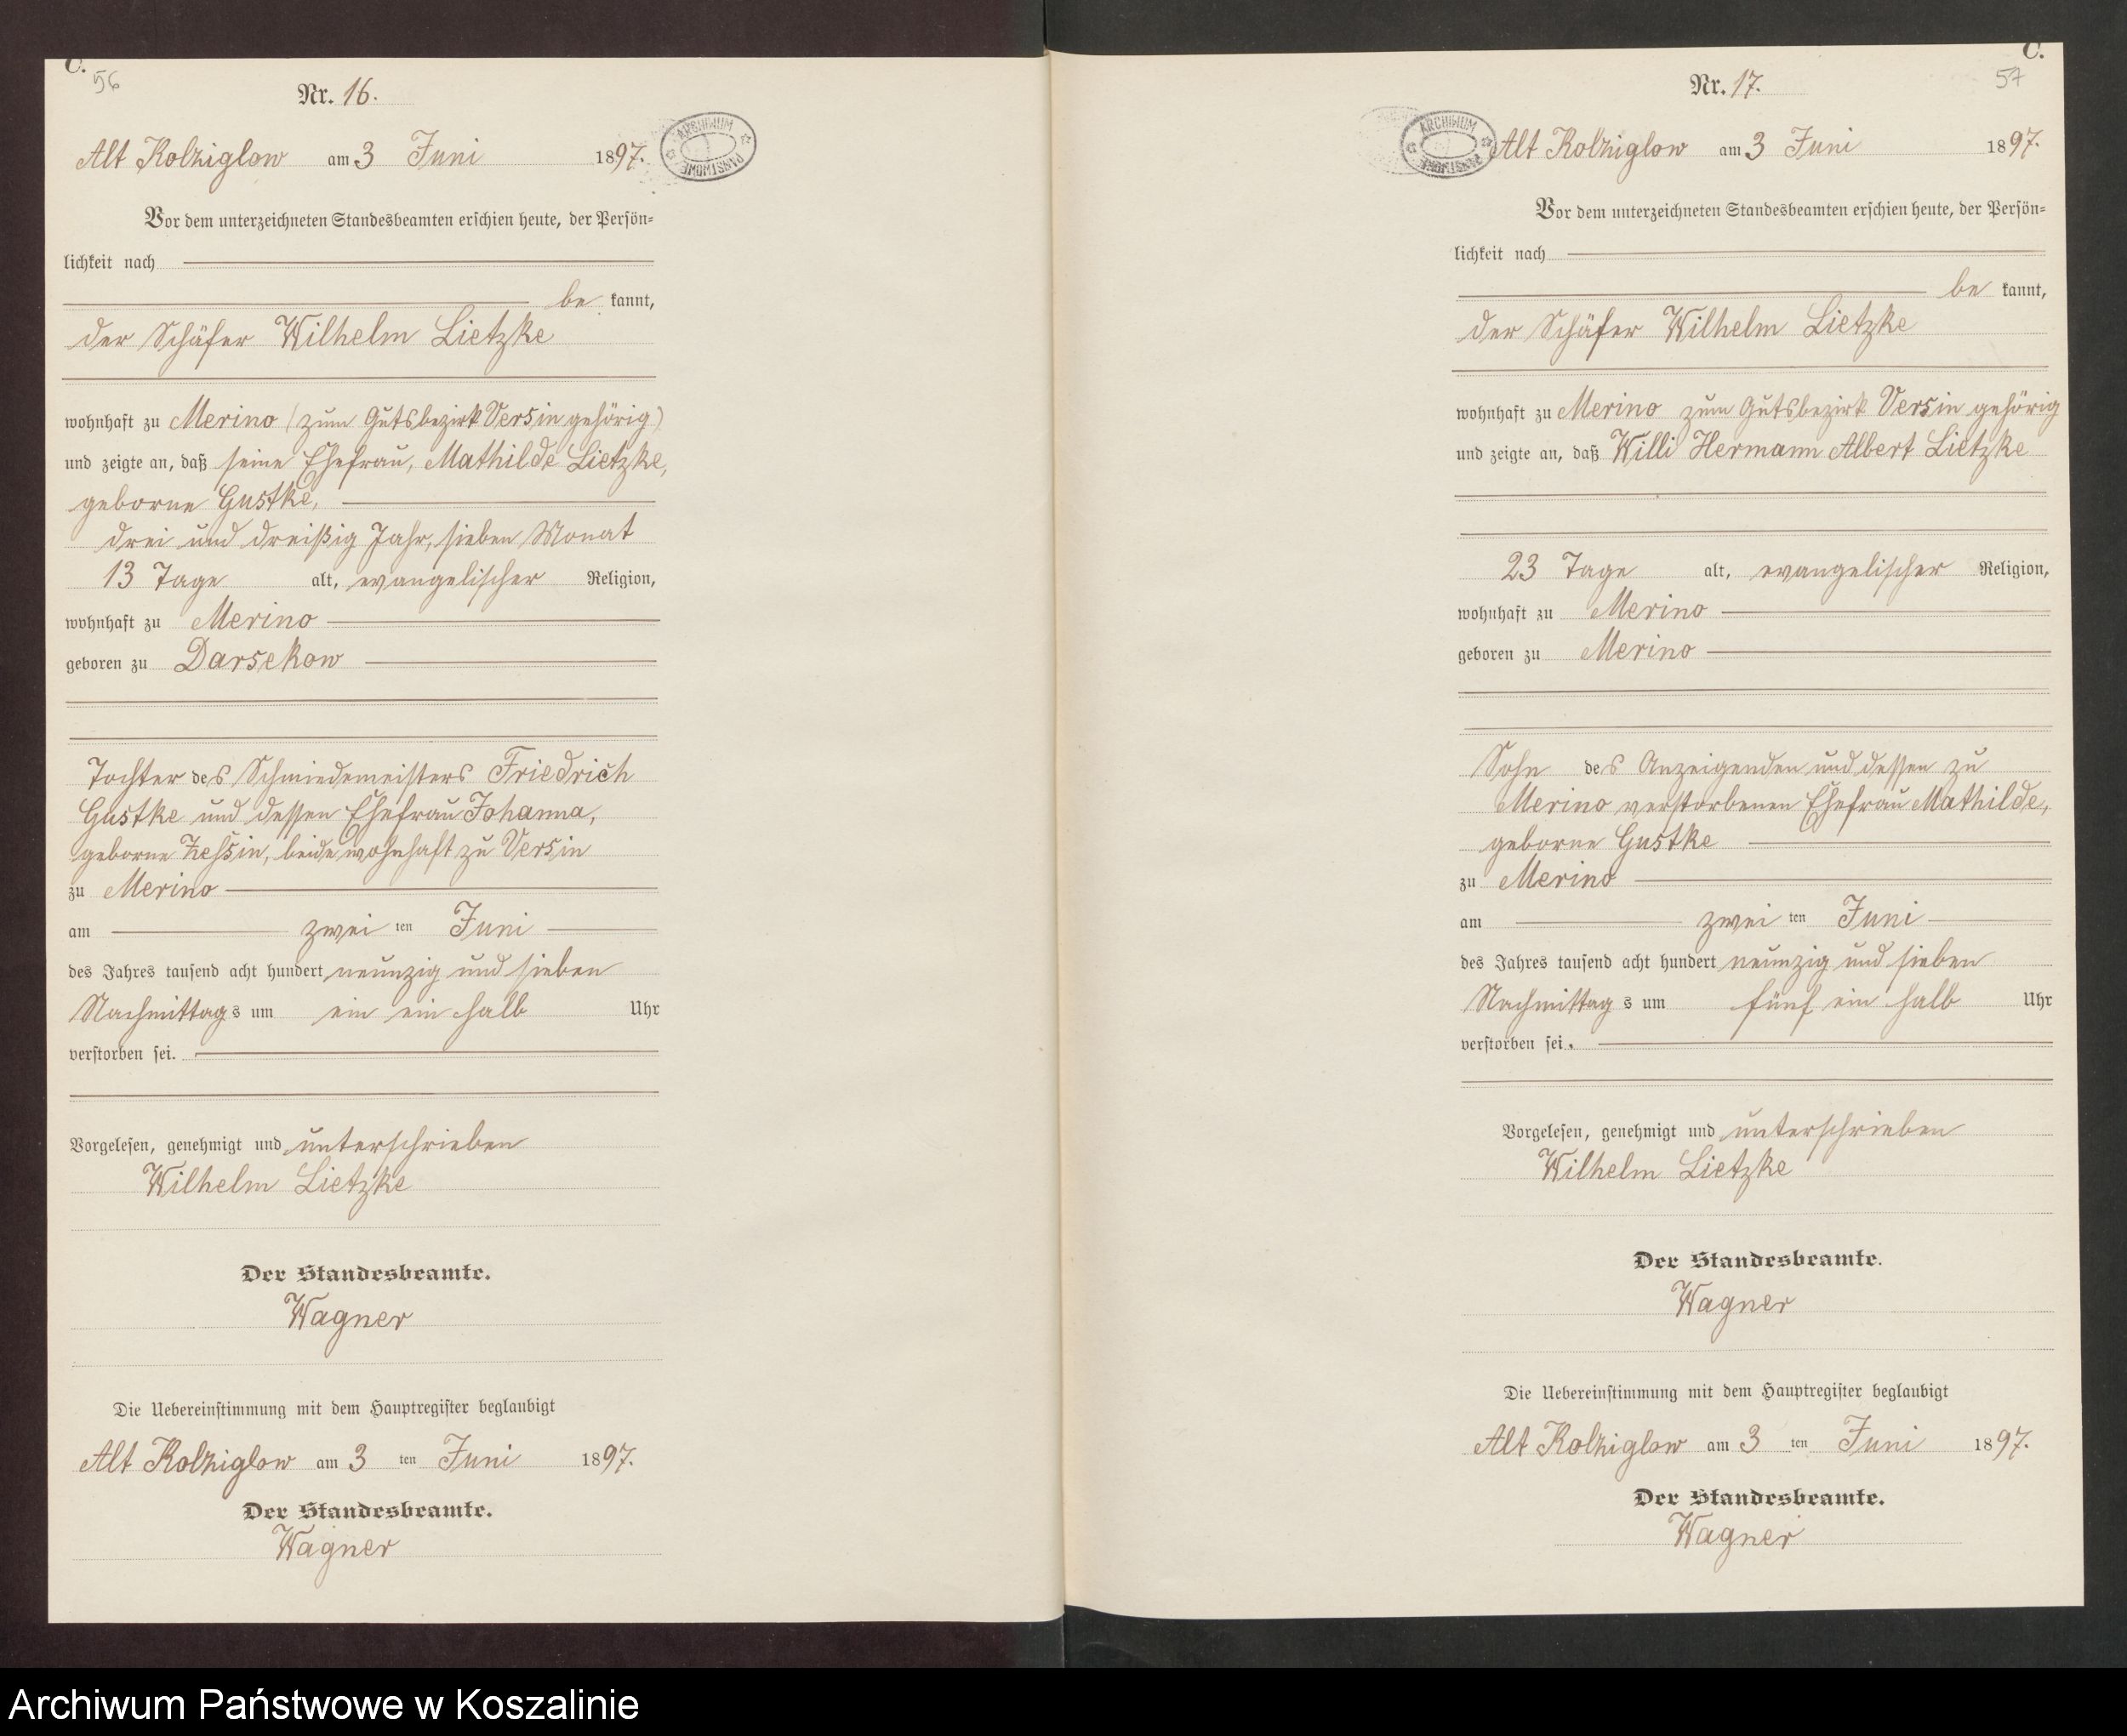 C.
56
Nr. 16.
Alt Kolziglow am 3 Juni 1897.
ARCHIWUM PAŃSTWOWE
Vor dem unterzeichneten Standesbeamten erschien heute, der Persön-
lichkeit nach
be kannt,
der Schäfer Wilhelm Lietzke
wohnhaft zu Merino (zum Gutsbezirk Versin gehörig)
und zeigte an, daß seine Ehefrau, Mathilde Lietzke,
geborne Gustke,
drei und dreißig Jahr, sieben Monat
13 Tage alt, evangelischer Religion,
wohnhaft zu Merino
geboren zu Darsekow
Tochter des Schmiedemeisters Friedrich
Gustke und dessen Ehefrau Johanna,
geborne Zessin, beide wohnhaft zu Versin
zu Merino
am zwei ten Juni
des Jahres tausend acht hundert neunzig und sieben
Nachmittags um ein ein halb Uhr
verstorben sei.
Vorgelesen, genehmigt und unterschrieben
Wilhelm Lietzke
Der Standesbeamte.
Wagner
Die Uebereinstimmung mit dem Hauptregister beglaubigt
Alt Kolziglow am 3 ten Juni 1897.
Der Standesbeamte.
Wagner
C.
57
Nr. 17.
ARCHIWUM PAŃSTWOWE
Alt Kolziglow am 3 Juni 1897.
Vor dem unterzeichneten Standesbeamten erschien heute, der Persön-
lichkeit nach
be kannt,
der Schäfer Wilhelm Lietzke
wohnhaft zu Merino zum Gutsbezirk Versin gehörig
und zeigte an, daß Willi Hermann Albert Lietzke
23 Tage alt, evangelischer Religion,
wohnhaft zu Merino
geboren zu Merino
Sohn des Anzeigenden und dessen zu
Merino verstorbenen Ehefrau Mathilde,
geborne Gustke
zu Merino
am zwei ten Juni
des Jahres tausend acht hundert neunzig und sieben
Nachmittags um fünf ein halb Uhr
verstorben sei.
Vorgelesen, genehmigt und unterschrieben
Wilhelm Lietzke
Der Standesbeamte.
Wagner
Die Uebereinstimmung mit dem Hauptregister beglaubigt
Alt Kolziglow am 3 ten Juni 1897.
Der Standesbeamte.
Wagner
Archiwum Państwowe w Koszalinie